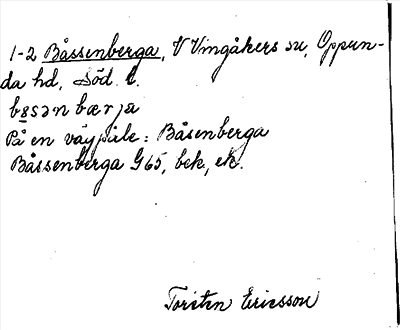 1-2 Båssenberga, V Vingåkers sn, Oppun-
da hd, Söd. l.
bɵsən bærja
På en vägpåle: Båsenberga
Båssenberga G65, bek, ek.
Torsten Ericsson